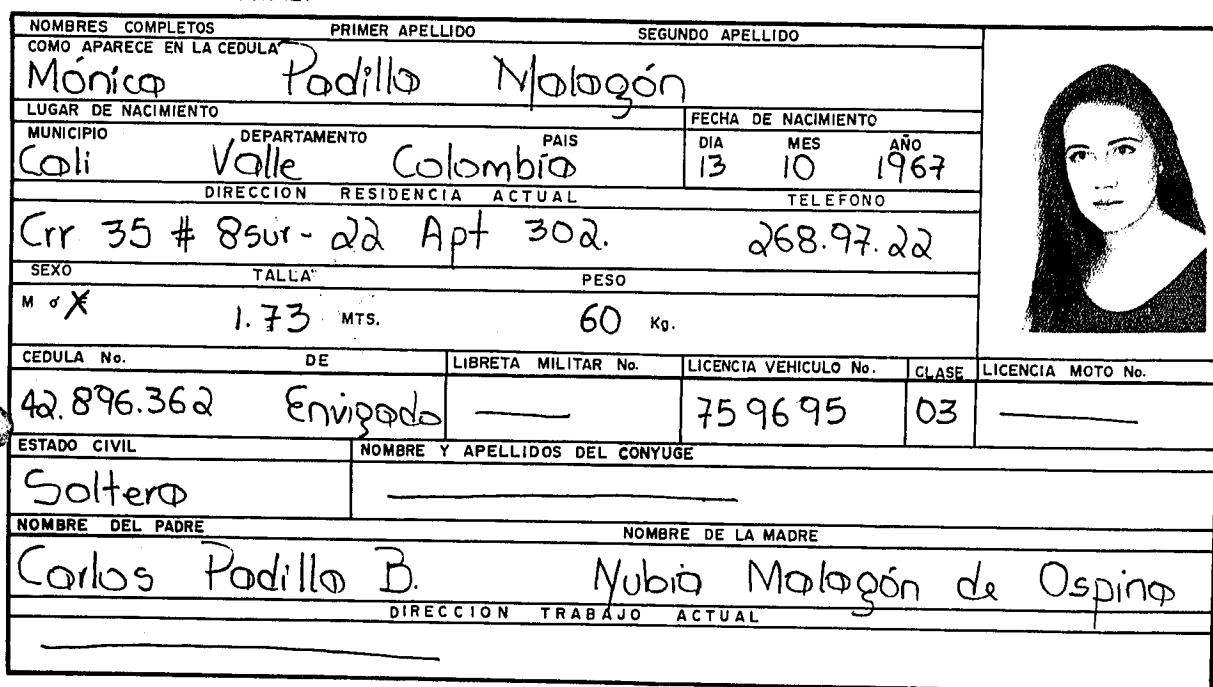 NOMBRES COMPLETOS PRIMER APELLIDO SEGUNDO APELLIDO
COMO APARECE EN LA CEDULA
Mónica Padilla Malagón
LUGAR DE NACIMIENTO FECHA DE NACIMIENTO
MUNICIPIO DEPARTAMENTO PAIS DIA MES AÑO
Cali Valle Colombia 13 10 1967
DIRECCION RESIDENCIA ACTUAL TELEFONO
Crr 35 # 8sur-22 Apt 302. 268.97.22
SEXO TALLA PESO
M ó F 1.73 MTS. 60 Kg.
CEDULA No. DE LIBRETA MILITAR No. LICENCIA VEHICULO No. CLASE LICENCIA MOTO No.
42.896.362 Envigado 759695 03
ESTADO CIVIL NOMBRE Y APELLIDOS DEL CONYUGE
Soltera
NOMBRE DEL PADRE NOMBRE DE LA MADRE
Carlos Padilla B. Nubia Malagón de Ospina
DIRECCION TRABAJO ACTUAL